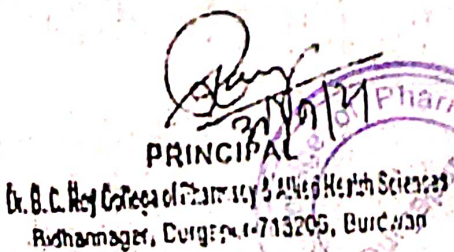 Pharm
PRINCIPAL
Dr. B. C. Roy College of Pharmacy & Allied Health Sciences
Bidhannagar, Durgapur-713206, Burdwan